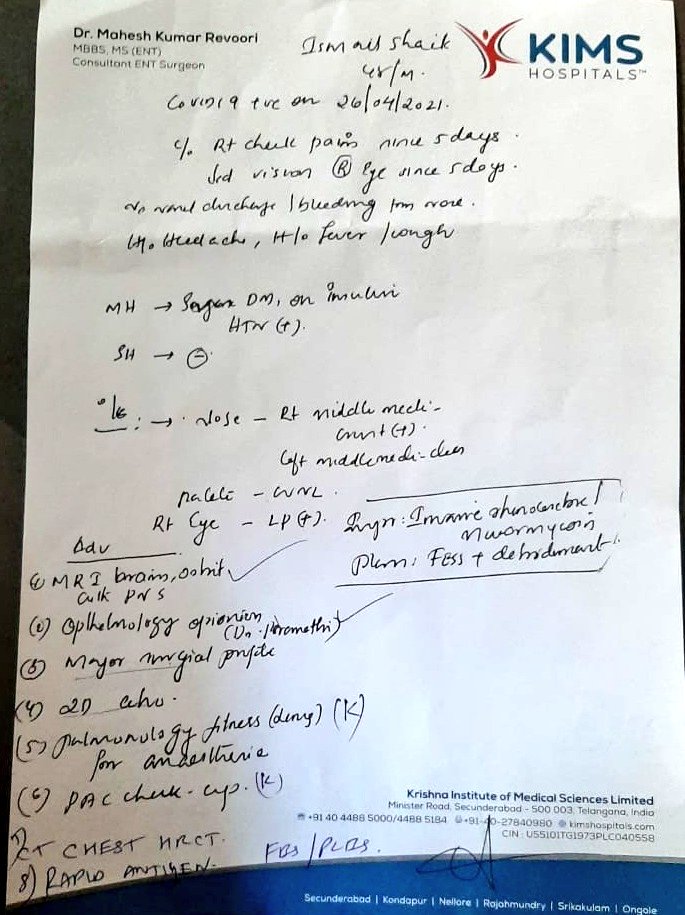 Dr. Mahesh Kumar Revoori
MBBS, MS (ENT)
Consultant ENT Surgeon
KIMS
HOSPITALS™
Ismail Shaik
/M.
Covid19 +ve on 26/04/2021.
c/o Rt cheek pain since 5 days.
vision Ⓡ Eye since 5 days.
No nasal discharge / bleeding from nose.
H/o Headache, H/o fever / cough
MH → DM, on insulin
HTN (+).
SH → ⊖.
O/E : → Nose - Rt middle meati-
crust (+).
Left middle meati - clear
palate - WNL.
Rt Eye - LP (+).
Imp: Invasive rhinocerebral
mucormycosis
Plan: FESS + debridement.
Adv
(1) MRI brain, orbit,
PNS
(2) Opthelmology opionion
(Dr. )
(3) Major surgial profile
(4) 2D echo.
(5) pulmonology fitness (deny) (K)
for anaesthesia
(6) PAC check-up. (K)
7) CT CHEST HRCT.
8) RAPID ANTIGEN.
FBS/PLBS.
Krishna Institute of Medical Sciences Limited
Minister Road, Secunderabad - 500 003, Telangana, India
+91 40 4488 5000/4488 5184 +91-40-27840980 kimshospitals.com
CIN : U55101TG1973PLC040558
Secunderabad | Kondapur | Nellore | Rajahmundry | Srikakulam | Ongole